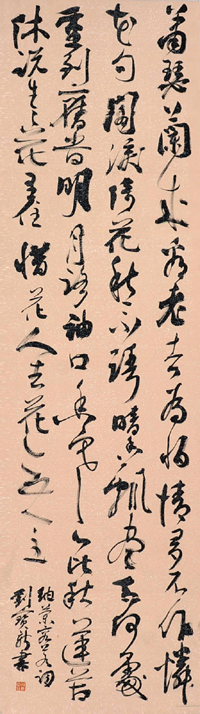 蕭瑟蘭成看老去為怕情多不作憐
花句閣淚倚花愁不語暗香飄盡知何處
重到舊時明月路袖口香寒心比秋蓮苦
休說生生花裏住惜花人去花無主
納蘭容若詞
劉 書